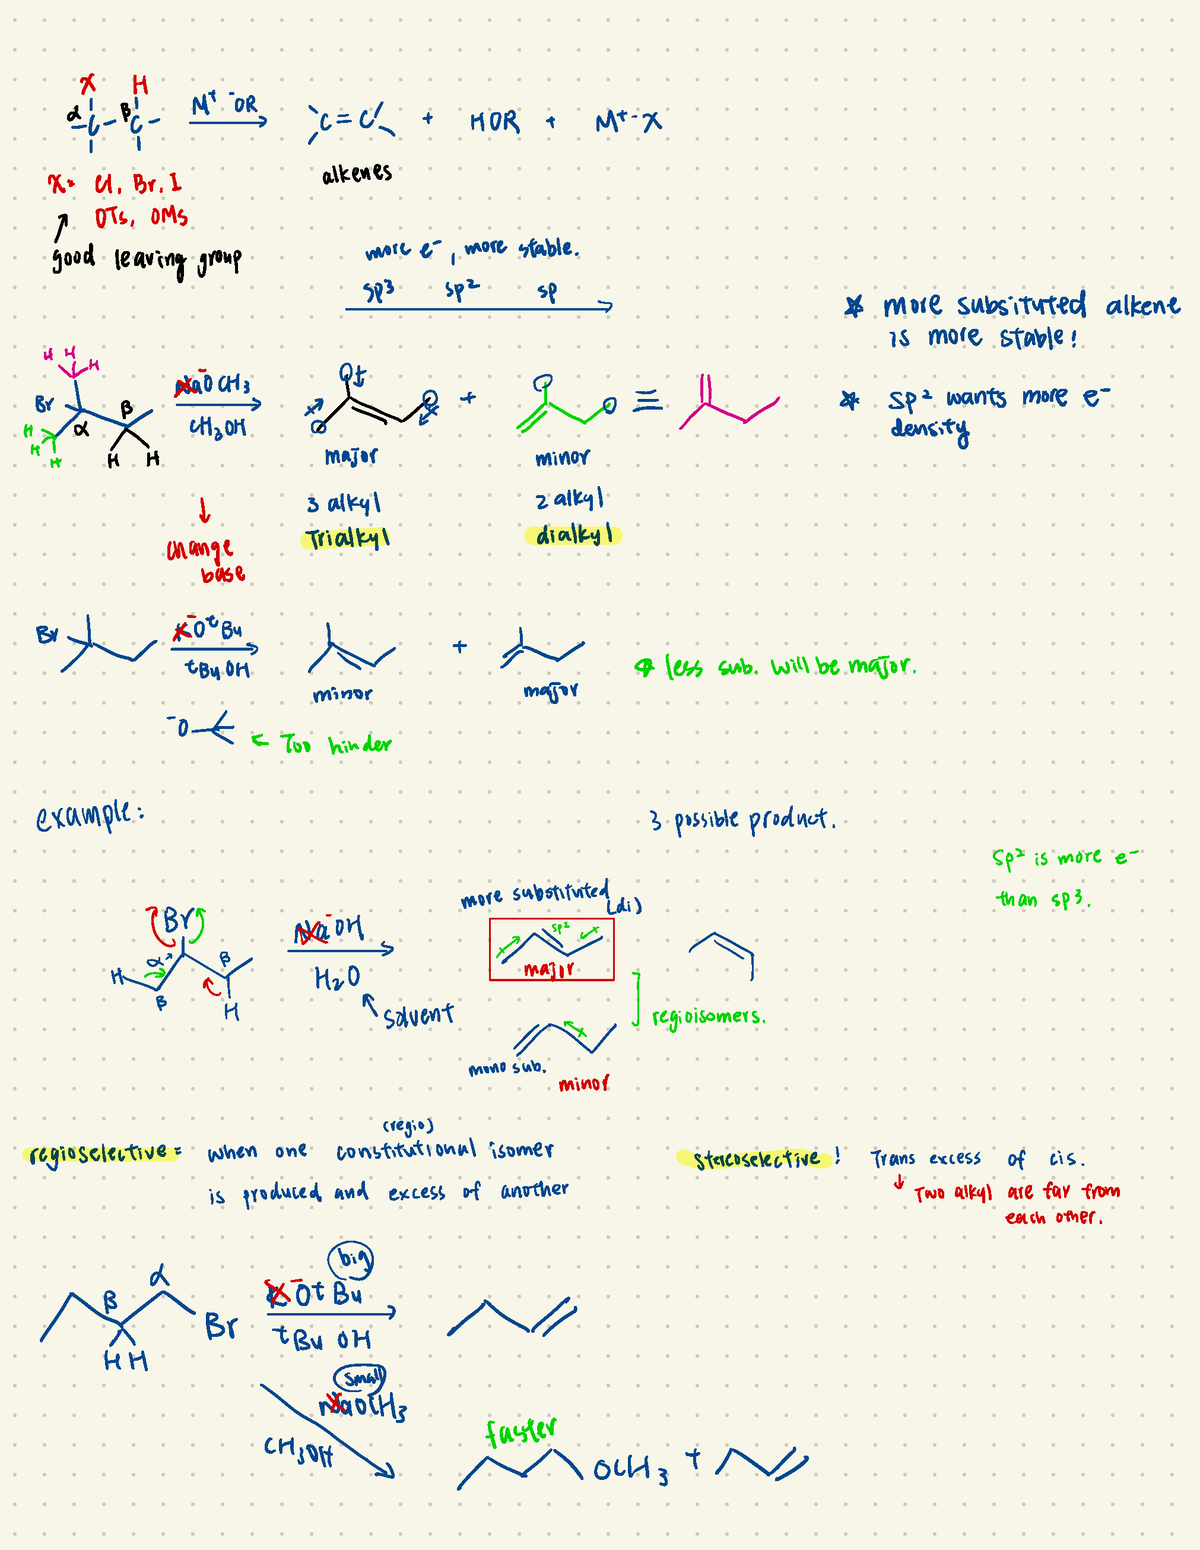 X H
α β
-C-C- M⁺ ⁻OR C=C + HOR + M⁺-X
alkenes
X= Cl, Br, I
OTs, OMs
good leaving group
more e⁻, more stable.
sp3 sp² sp
* more subsituted alkene
is more stable!
* sp² wants more e⁻
density
H H H
Br α β
H H H
H H
NaO⁻CH3
CH3OH
+ ≡
major
3 alkyl
Trialkyl
minor
2 alkyl
dialkyl
↓
change
base
Br
K⁻OᵗBu
ᵗBuOH
minor
+
major
* less sub. will be major.
⁻O
← Too hinder
example:
3 possible product.
sp² is more e⁻
than sp3.
more substituted
(di)
Br
α
H β β H
Na⁻OH
H₂O
solvent
sp²
major
regioisomers.
mono sub.
minor
(regio)
regioselective = when one constitutional isomer
is produced and excess of another
stereoselective! Trans excess of cis.
↓ Two alkyl are far from
each other.
big
β α
Br
H H
K⁻OtBu
ᵗBuOH
small
NaOCH3
CH3OH
faster
OCH3 +